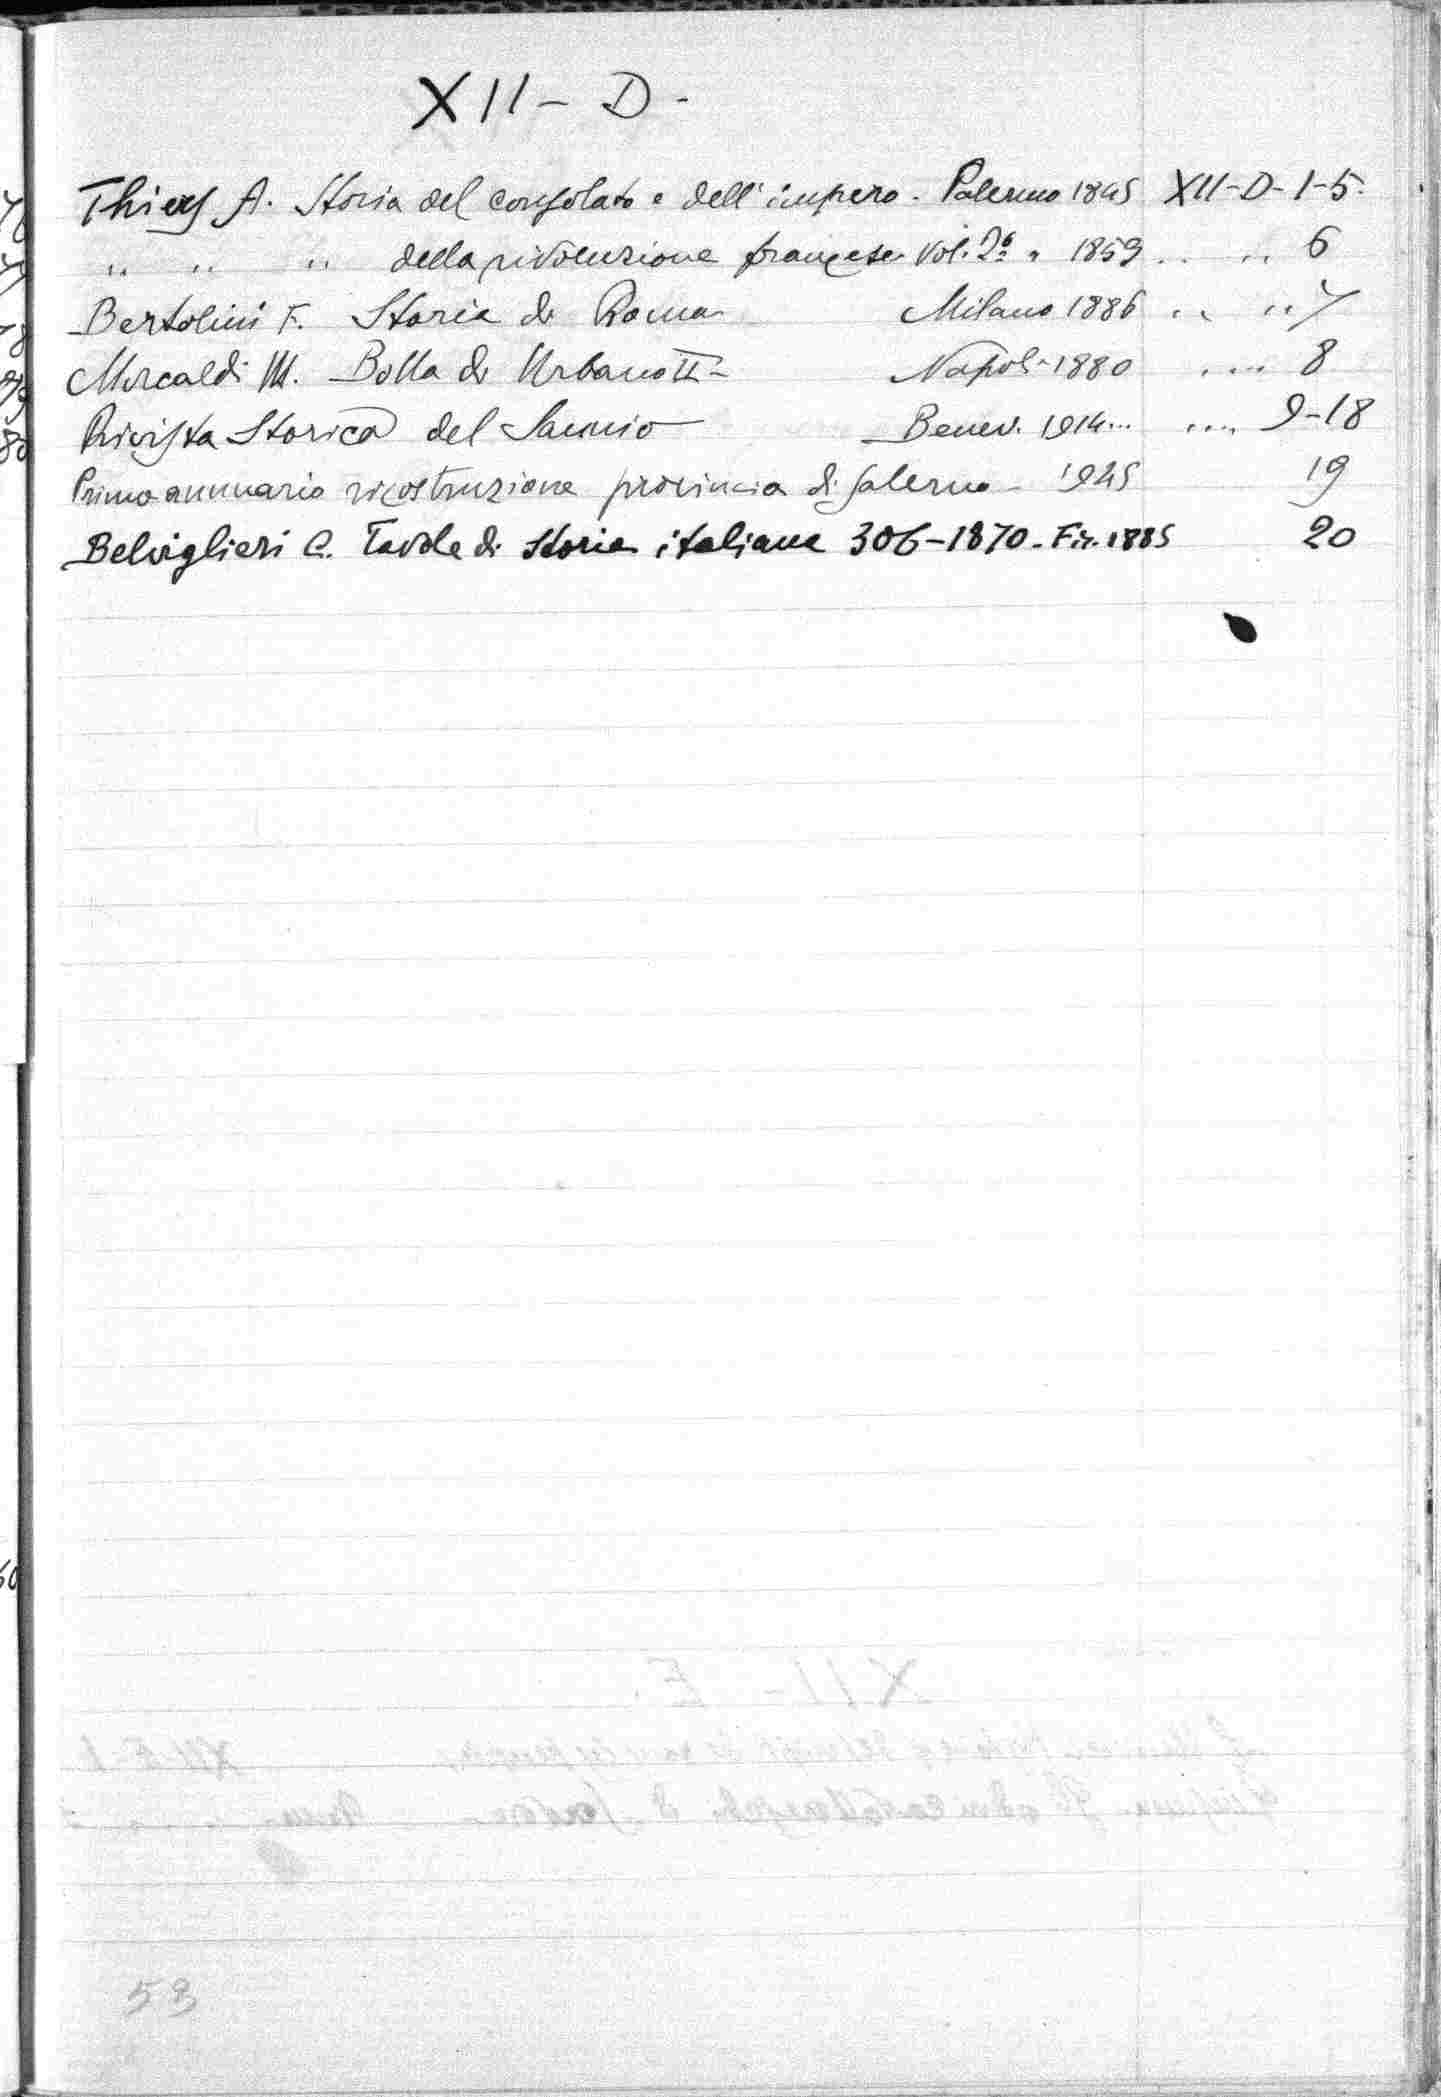 XII - D -
Thiers A. Storia del consolato e dell'impero. Palermo 1845 XII-D-1-5.
" " " della rivoluzione francese Vol. 2° " 1859 " " 6
Bertolini F. Storia di Roma Milano 1886 " " 7
Morcaldi M. Bolla di Urbano II - Napoli - 1880 " " 8
Rivista Storica del Sannio Benev. 1914... " " 9-18
Primo annuario ricostruzione provincia di Salerno - 1945 19
Belviglieri C. Tavole di storia italiana 306-1870. Fir. 1885 20
53